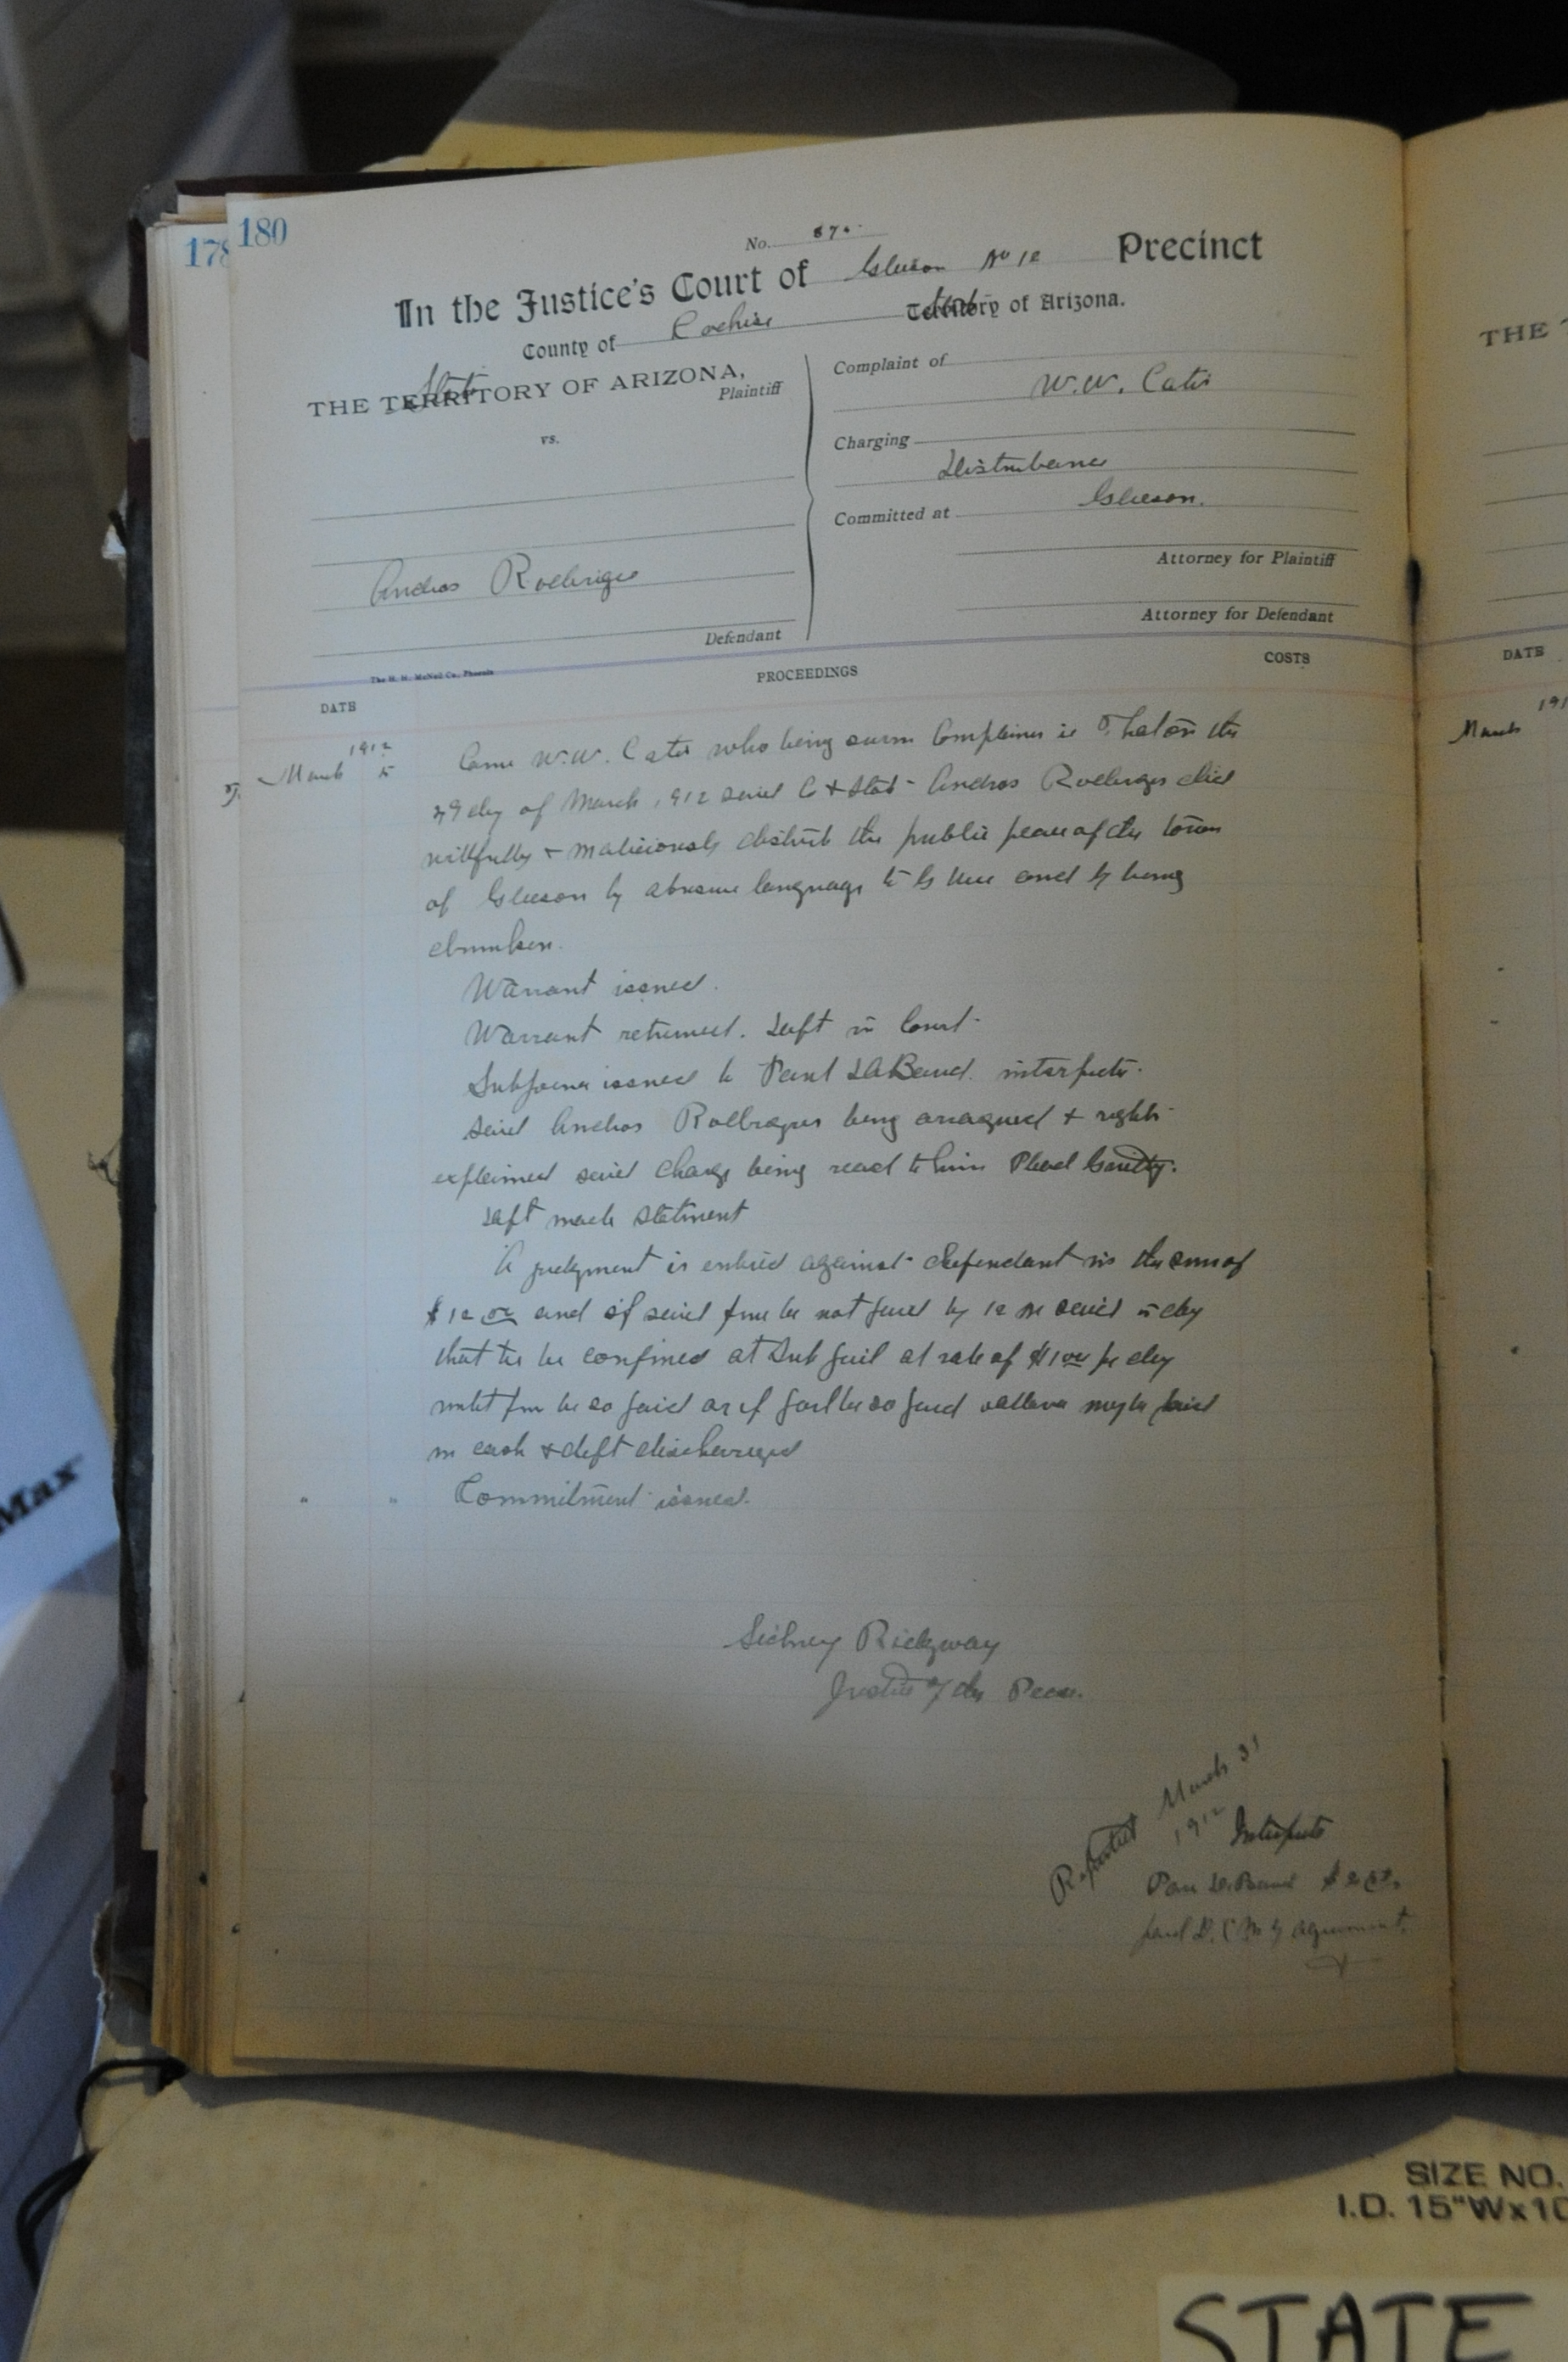 178
180
No. 870.
In the Justice's Court of Gleeson No 12 Precinct
County of Cochise State Territory of Arizona.
State
THE TERRITORY OF ARIZONA,
Plaintiff
vs.
Andros Rodriges
Defendant
Complaint of
W. W. Cates
Charging
Disturbance
Committed at Gleeson.
Attorney for Plaintiff
Attorney for Defendant
The H. H. McNeil Co., Phoenix
DATE
PROCEEDINGS
COSTS
1912
March 5
Came W. W. Cates who being sworn Complains is That on the
day of March 1912 said Co & State Andros Rodriges did
willfully & maliciously disturb the public peace of the town
of Gleeson by abusive language to and by being
drunken.
Warrant issued.
Warrant returned. Deft in Court.
Subpoena issued to Paul DeBaud. interpreter.
Said Andros Rodrigues being arraigned & rights
explained said charge being read to him Plead Guilty.
Deft made statment
A judgment is entered against defendant in the sum of
$12 00 and if said fine be not paid by 12 M said day
that he be confined at Sub jail at rate of $1 00 per day
until fine be so paid or if part be so paid may be paid
in cash & deft discharged
" " Commitment issued.
Sidney Ridgway
Justice of the Peace.
Reported March 31
1912
Interpreter
Paul DeBaud $2
paid D. C. M by agreement.
THE
DATE
191
March
Max
SIZE NO.
I.D. 15"Wx10
STATE